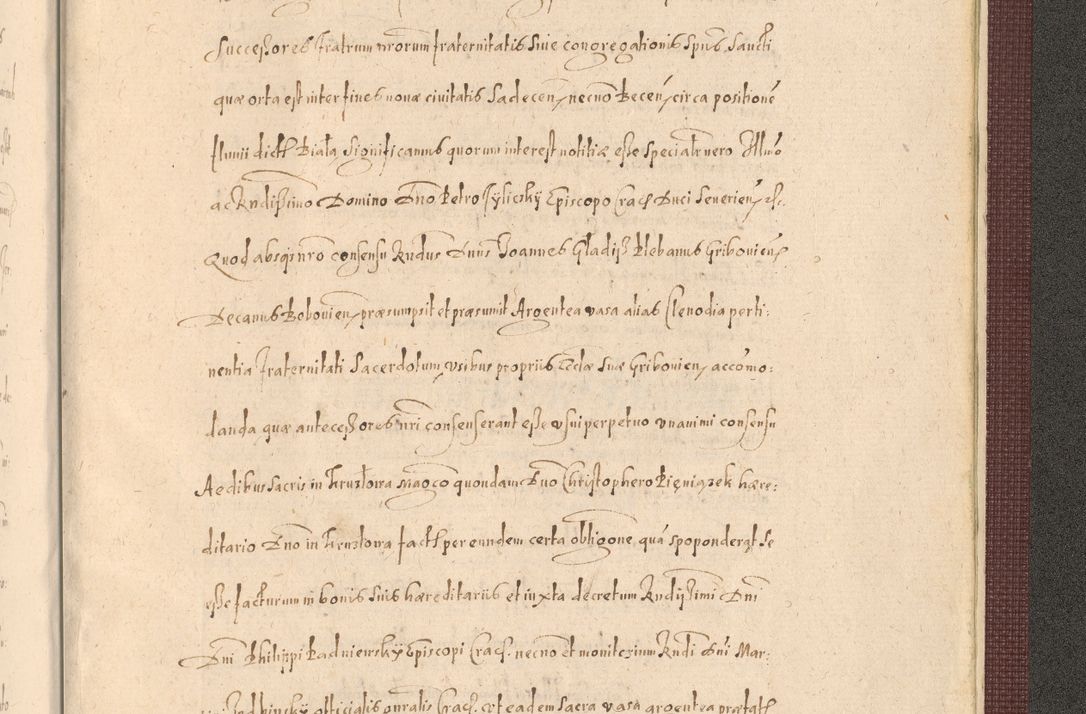 Successores fratrum nrorum fraternitatis siue congregationis Spūs Sancti
quæ orta est inter fines nouæ ciuitatis Sadecen necnō Becen circa positionē
fluuii dicti Biała Significamus quorum interest notitiæ esse speciałr vero Illmo
ac Rndissimo Domino Dno Petro Tyliczky Episcopo Crac Duci Seuerien etc.
Quod absqs nrō consensu Rndus Dnus Joannes Gladisz Plebanus Gribouien
Decanus Bobouien præsumpsit et præsumit Argentea vasa alias Clenodia perti:
nentia fraternitati Sacerdotum, vsibus propriis Ecclæ suæ Gribouien accōmo:
danda quæ antecessores nri consenserant esse vsui perpetuo vnanimi consensu
Aedibus sacris in Kruzlowa Magco quondam Dno Christophero Pieniązek hære:
ditario Dno in Kruzlowa facti per eundem certa obligone, qua spoponderat se
esse facturum in bonis suis hæreditariis et iuxta decretum Rndissimi Dni
Dni Philippi Padniewsky Episcopi Crac. necnō et monitorium Rndi Dni Mar:
officialis gnralis Crac. vt eadem sacra vasa argentea præfatæ